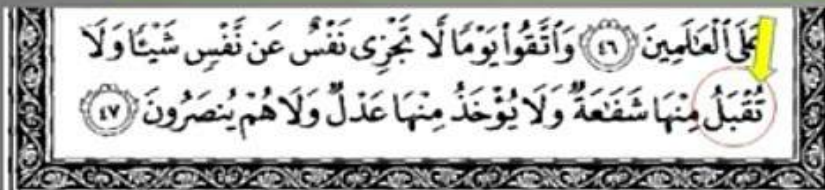 عَلَى ٱلْعَـٰلَمِينَ ٤٦ وَٱتَّقُوا۟ يَوْمًا لَّا تَجْزِى نَفْسٌ عَن نَّفْسٍ شَيْـًٔا وَلَا
تُقْبَلُ مِنْهَا شَفَـٰعَةٌ وَلَا يُؤْخَذُ مِنْهَا عَدْلٌ وَلَا هُمْ يُنصَرُونَ ٤٧